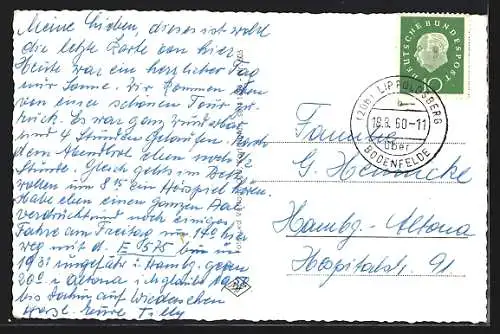 Meine Lieben, dieses ist wohl
die letzte Karte von hier.
Heute war ein herrlicher Tag
mit Sonne. Wir kommen eben
von einer schönen Tour zu-
rück. Es war ganz wunderbar
und 4 Stunden gelaufen. Nach
dem Abendbrot eben noch 1
Stunde. Gleich gehts in Bett
wollen um 8 15 ein Hörspiel hören.
Habe eben einen ganzen Aal
verdrückt und noch einiges
Fahre am Freitag um 14 0 hier
weg mit d. E 575 bin um
19 31 ungefähr in Hambg. gegen
20 0 in Altona
bis dahin auf Wiedersehen
Herzl. Eure Tilly
DEUTSCHE BUNDESPOST
10
(20b) LIPPOLDSBERG
18.8.60-11
über
BODENFELDE
Familie
G. Heinicke
Hambg.-Altona
Hospitalstr. 91